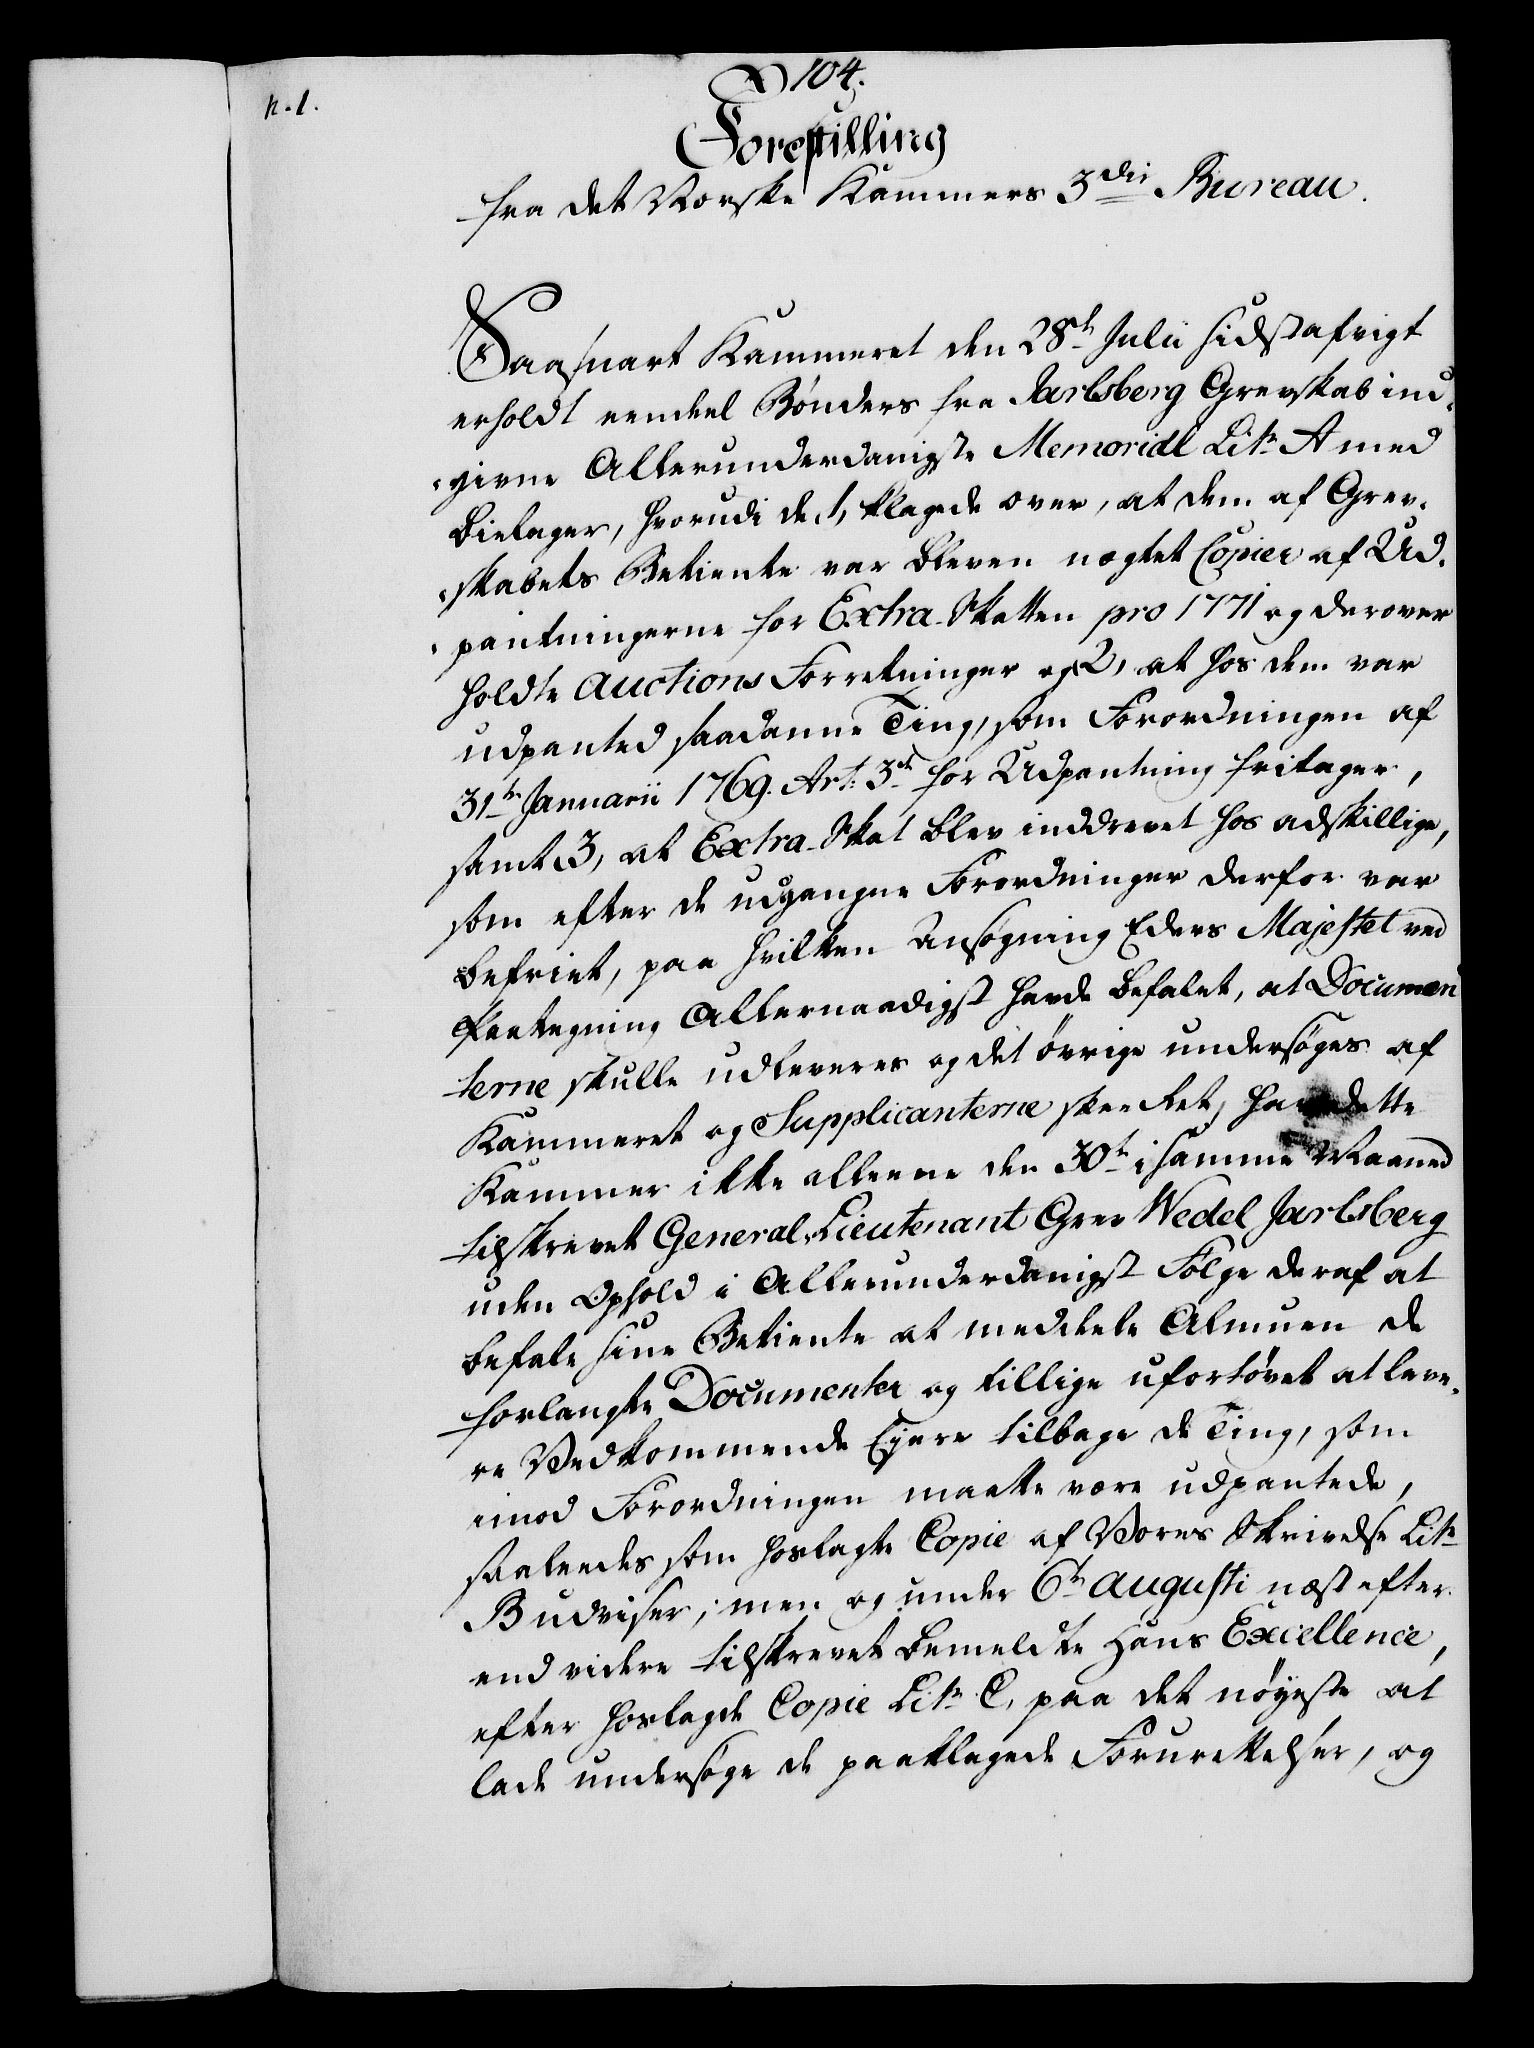 104.
n. 1.
Forestilling
fra det Norske Kammers 3die Bureau.
Saasnart Kammeret den 28de Julii sidst afvigt
erholdt eendeel Bønders fra Jarlsberg Grevskab ind-
givne Allerunderdanigste Memorial Litr A med
Bielager, hvorudi de 1, klagede over, at dem af Grev-
skabets Betiente var bleven negtet Copier af Ud-
pantningerne for Extra-Skatten pro 1771 og derover
holdte Auctions Forretninger og 2, at hos dem var
udpanted saadanne Ting, som Forordningen af
31te Januarii 1769. Art: 3de for Udpantning fritager,
samt 3, at Extra-Skat blev inddrevet hos adskillige,
som efter de udgangne Forordninger derfor var
befriet, paa hvilken Ansøgning Eders Majestet ved
Paategning Allernaadigst havde befalet, at Documen
terne skulle udleveres og det øvrige undersøges af
Kammeret og Supplicanterne skee Ret, havde dette
Kammer ikke alleene den 30te i samme Maaned
tilskrevet General-Lieutenant Grev Wedel Jarlsberg
uden Ophold i Allerunderdanigst Følge deraf at
befale sine Betiente at meddeele Almuen de
forlangte Documenter og tillige ufortøvet at leve-
re Vedkommende Ejere tilbage de Ting, som
imod Forordningen maatte være udpantede,
saaledes som hoslagte Copie af Vores Skrivelse Litr
B udviser; men og under 6te Augusti næst efter
end videre tilskrevet bemeldte Hans Excellence,
efter hoslagde Copie Litr C, paa det nøyeste at
lade undersøge de paaklagede Forurettelser, og